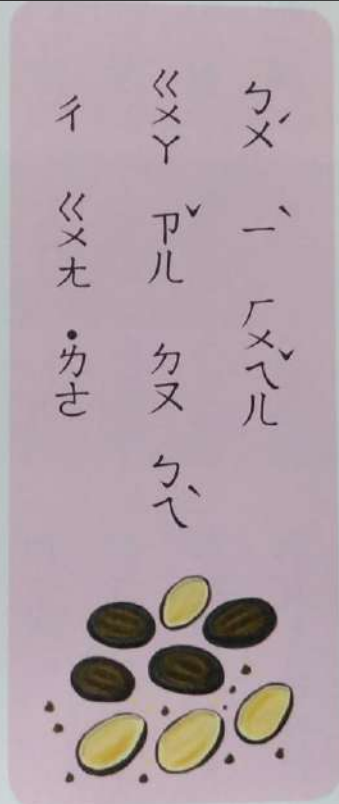 ㄅㄨˊ ㄧˋ ㄏㄨㄟˇㄦ
ㄍㄨㄚ ㄗˇㄦ ㄉㄡ ㄅㄟˋ
ㄔ ㄍㄨㄤ ˙ㄌㄜ